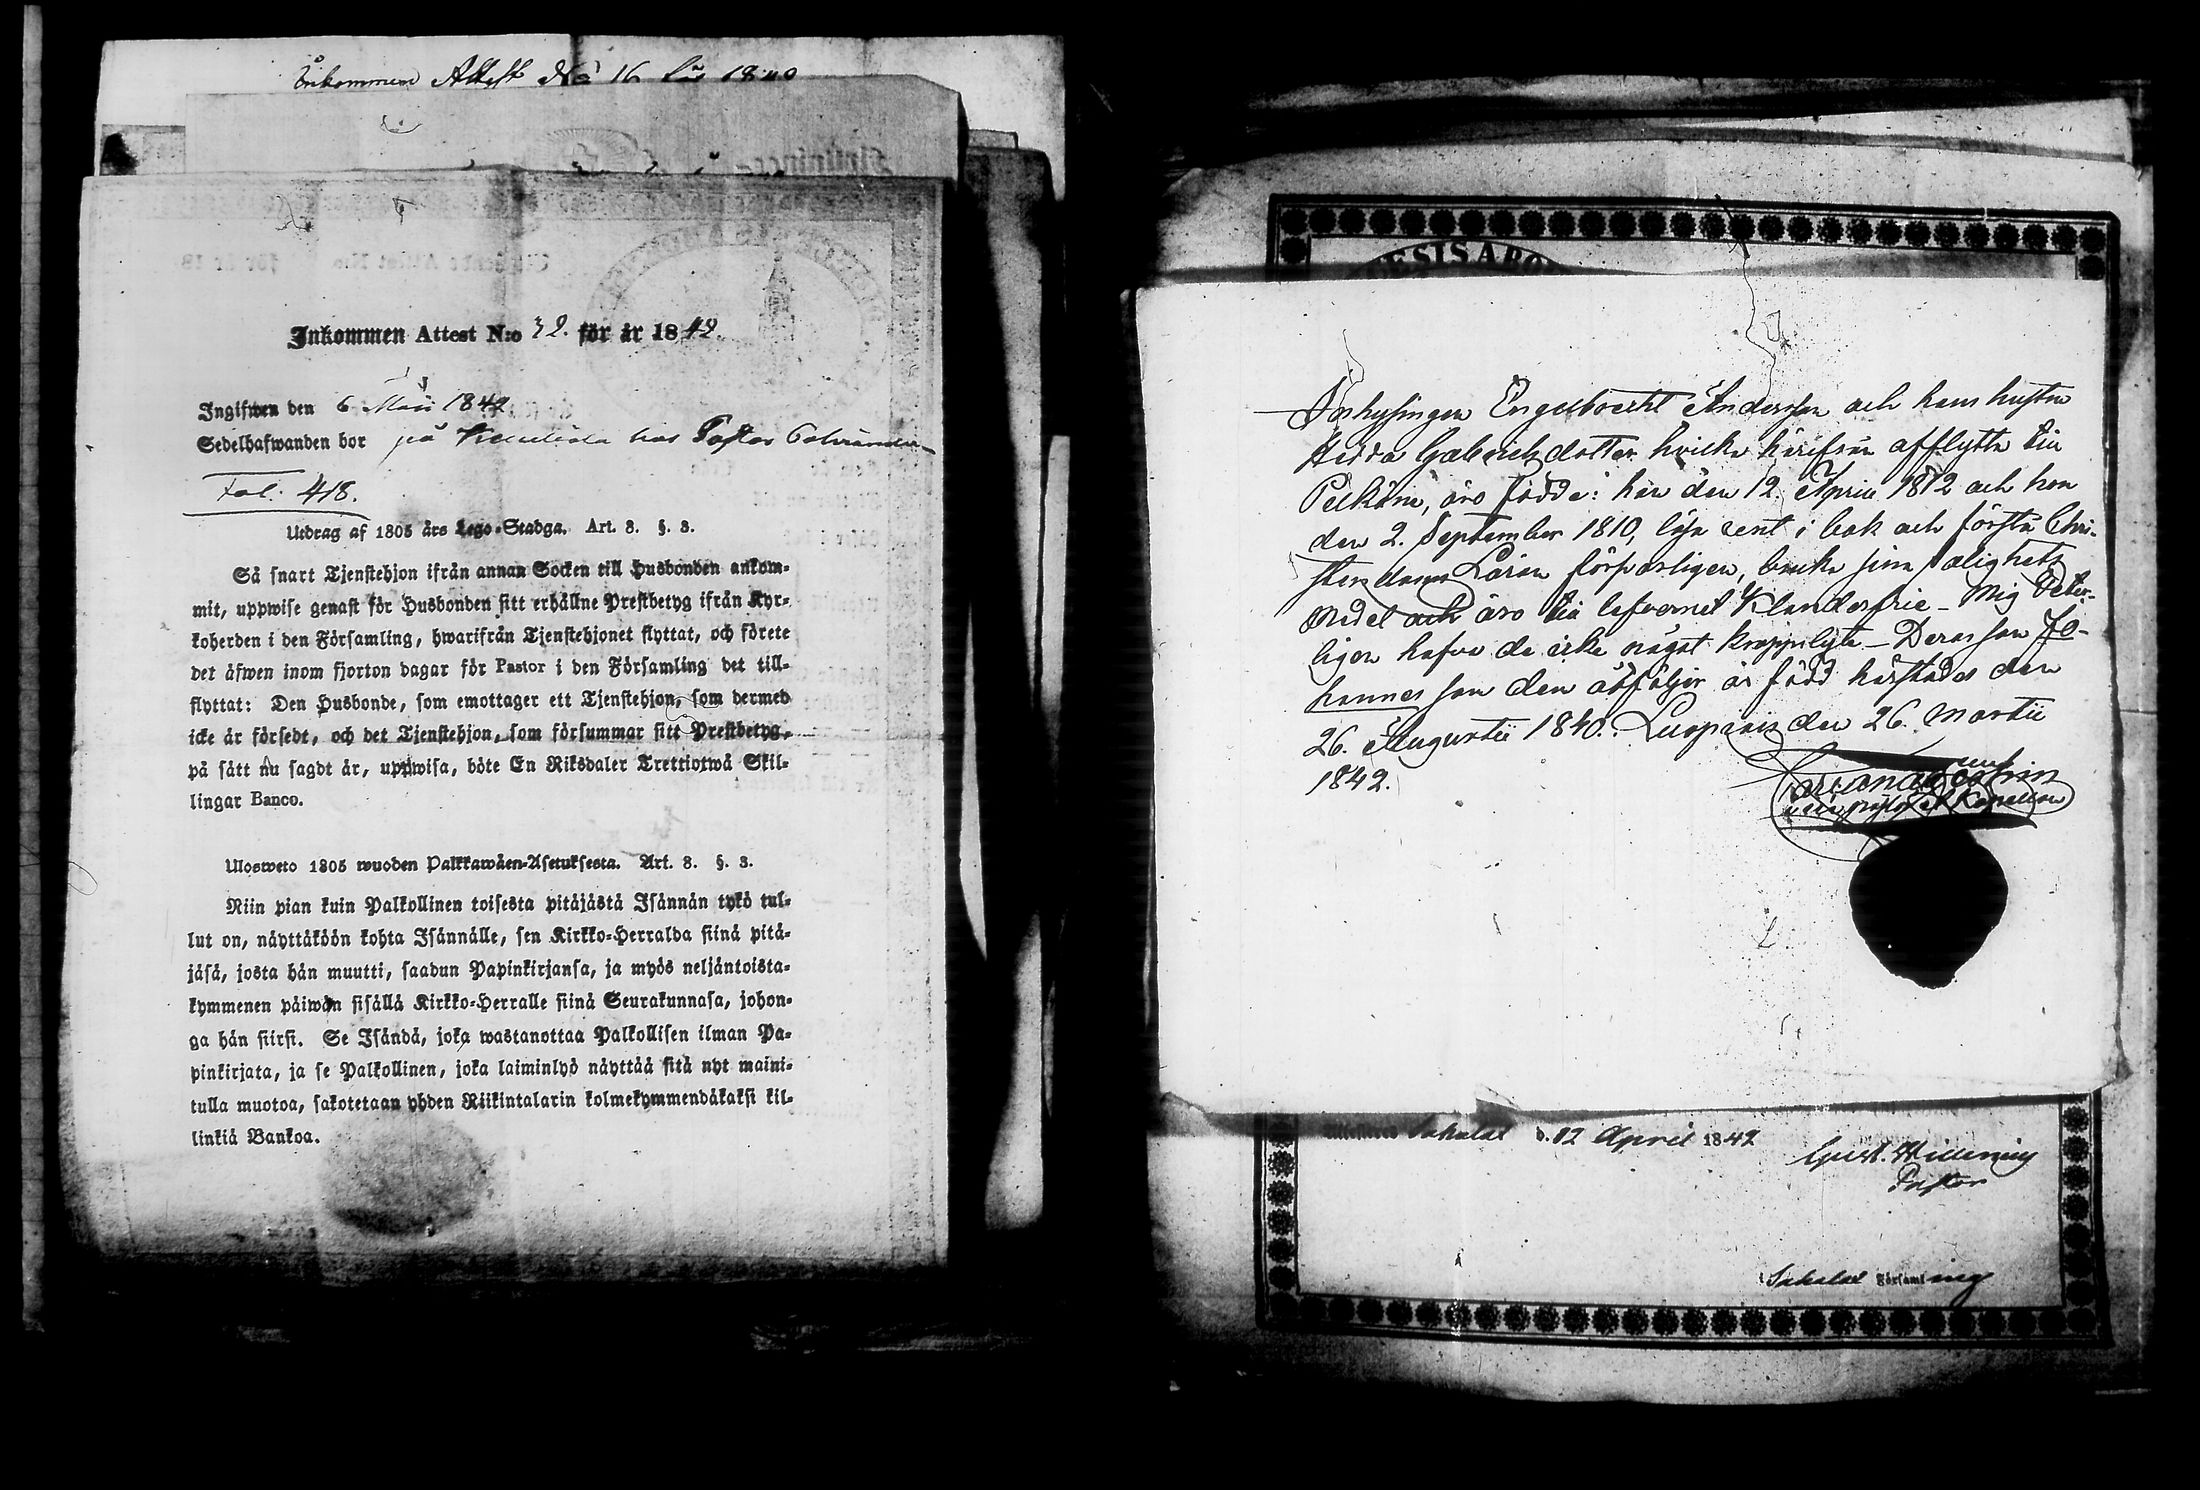 Inkommen Attest No 16 för 1840
Inkommen Attest N:o 32. för år 1842.
Ingifwen den 6 Maii 1842
Sedelhafwanden bor på hos Pastor
Fol: 418.
Utdrag af 1805 års Lego-Stadga. Art. 8. §. 3.
Så snart Tjenstehjon ifrån annan Socken till Husbonden ankom-
mit, uppwise genast för Husbonden sitt erhållne Prestbetyg ifrån Kyr-
koherden i den Församling, hwarifrån Tjenstehjonet flyttat, och förete
det äfwen inom fjorton dagar för Pastor i den Församling det till-
flyttat: Den Husbonde, som emottager ett Tjenstehjon, som dermed
icke är försedt, och det Tjenstehjon, som försummar sitt Prestbetyg,
på sätt nu sagdt är, uppwisa, böte En Riksdaler Trettiotwå Skil-
lingar Banco.
Ulosweto 1805 wuoden Palkkawäen-Asetuksesta. Art. 8. §. 3.
Niin pian kuin Palkollinen toisesta pitäjästä Isännän tykö tul-
lut on, näyttäköön kohta Isännälle, sen Kirkko-Herralda siinä pitä-
jäsä, josta hän muutti, saadun Papinkirjansa, ja myös neljäntoista-
kymmenen päiwän sisällä Kirkko-Herralle siinä Seurakunnasa, johon-
ga hän siirsi. Se Isändä, joka wastanottaa Palkollisen ilman Pa-
pinkirjata, ja se Palkollinen, joka laiminlyö näyttää sitä nyt maini-
tulla muotoa, sakotetaan yhden Riikintalarin kolmekymmendäkaksi kil-
linkiä Bankoa.
ESIS ABO
Inhysingen Engelbrecht Andersson och hans hustru
Hedda Gabrielsdotter hvilka härifrån afflytta till
Pelkäne, äro födde: han den 12 April 1812 och hon
den 2. September 1810, läsa rent i bok och förstå Chri-
stendoms Läran försvarligen, bruka sina salighets
Medel och äro till lefvernet Klanderfrie – Mig veter-
ligen hafva de icke något kroppslyte – Deras son Jo-
hannes som dem åtföljer är född härstädes den
26. Augusti 1840. Luopiois den 26. Martii
1842.
Attesteras Sahalax d. 12 April 1842
Gust.
Pastor
Sahalax Församling